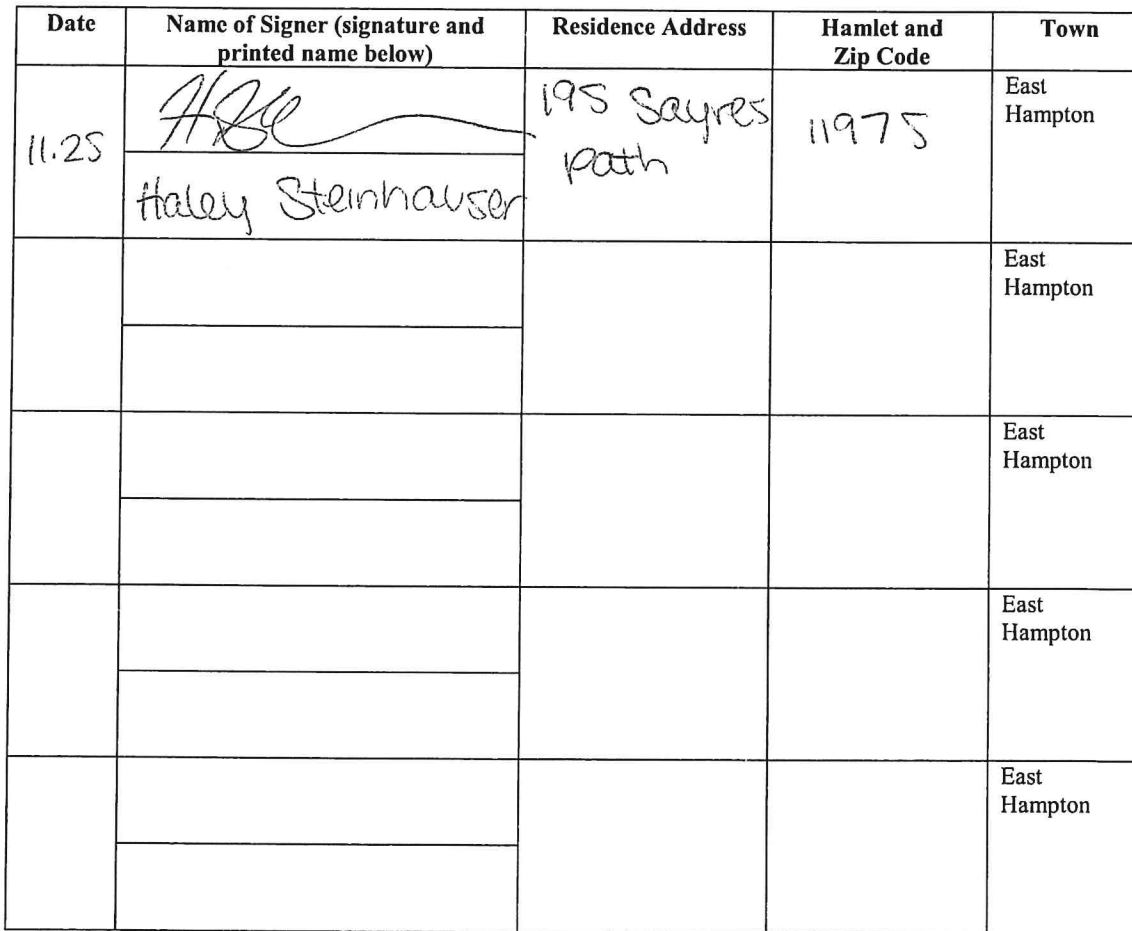 Date
Name of Signer (signature and
printed name below)
Residence Address
Hamlet and
Zip Code
Town
11.25
Haley Steinhauser
195 Sayres
path
11975
East
Hampton
East
Hampton
East
Hampton
East
Hampton
East
Hampton